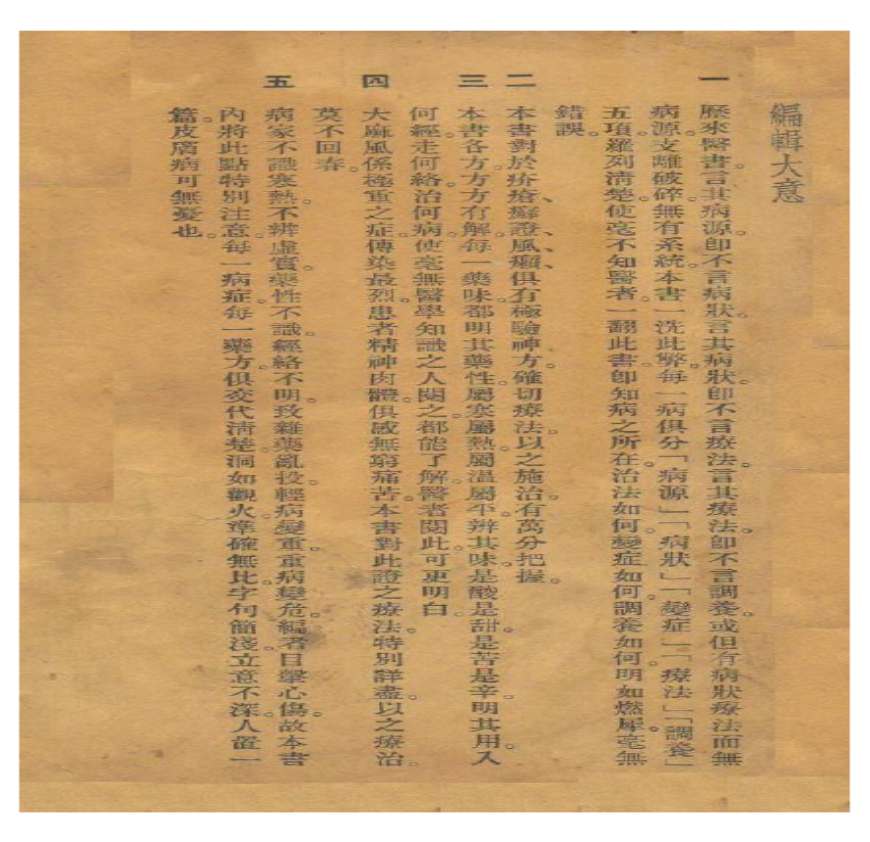 編輯大意
一　歷來醫書。言其病源。卽不言病狀。言其病狀。卽不言療法。言其療法。卽不言調養。或但有病狀療法而無
病源。支離破碎。無有系統。本書一洗此弊。每一病俱分「病源」「病狀」「變症」「療法」「調養」
五項。羅列清楚。使毫不知醫者。一翻此書。卽知病之所在。治法如何。變症如何。調養如何。明如燃犀。毫無
錯誤。
二　本書對於疥瘡、癬證、風癩、俱有極驗神方。確切療法。以之施治。有萬分把握。
三　本書各方。方方有解。每一藥味。都明其藥性。屬寒屬熱。屬溫屬平。辨其味。是酸是甜。是苦是辛。明其用。入
何經。走何絡。治何病。使毫無醫學知識之人閱之。都能了解。醫者閱此。可更明白。
四　大麻風係極重之症。傳染最烈。患者精神肉體。俱感無窮痛苦。本書對此證之療法。特別詳盡。以之療治。
莫不回春。
五　病家不識寒熱。不辨虛實。藥性不識。經絡不明。致雜藥亂投。輕病變重。重病變危。編者目擊心傷。故本書
內將此點特別注意。每一病症。每一藥方。俱交代清楚。洞如觀火。準確無比。字句簡淺。立意不深。人置一
篇。皮膚病可無憂也。